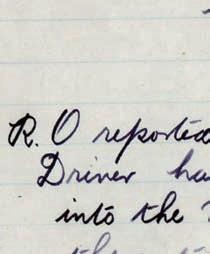 R. O reported
Driver ha
into the